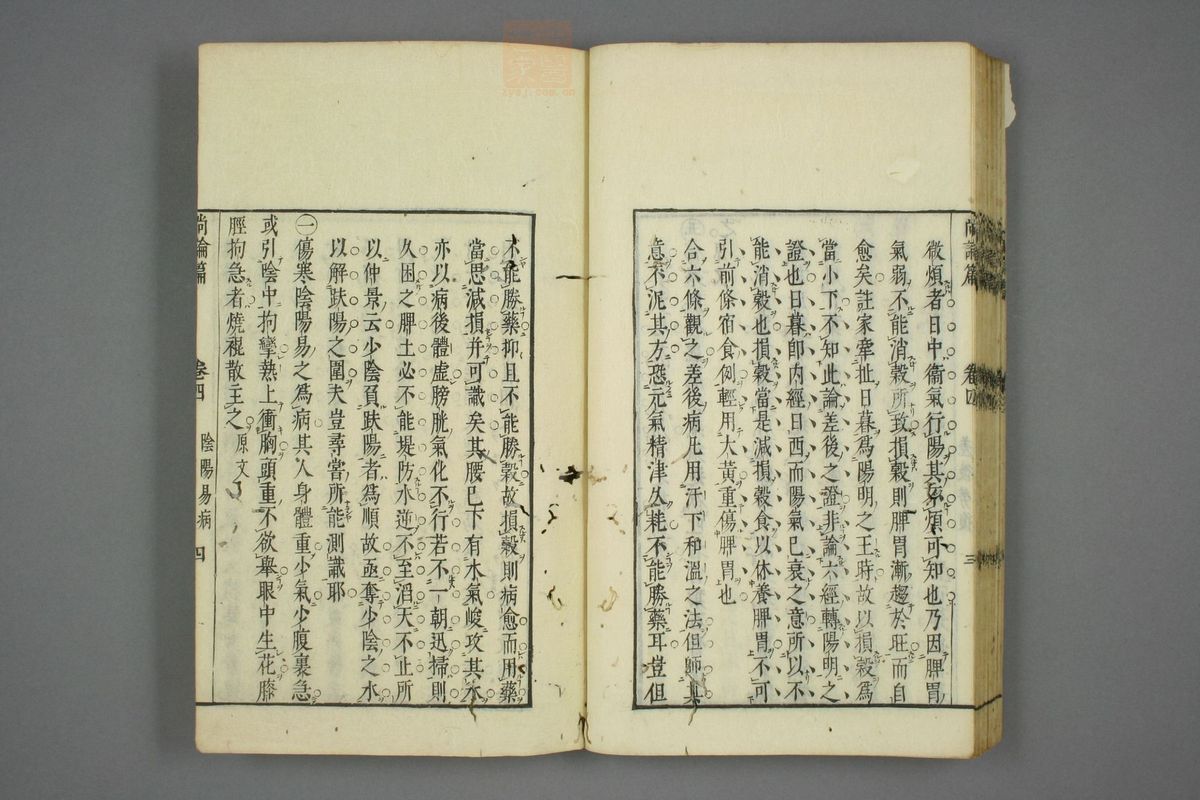 尚論篇 卷四 三
微煩者日中衞氣行陽其不煩可知也乃因脾胃
氣弱不能消穀所致損穀則脾胃漸趨於旺而自
愈矣註家牽扯日暮爲陽明之王時故以損穀爲
當小下不知此論差後之證非論六經轉陽明之
證也日暮卽內經日西而陽氣已衰之意所以不
能消穀也損穀當是減損穀食以休養脾胃不可
引前條宿食例輕用大黃重傷脾胃也
合六條觀之差後病凡用汗下和溫之法但師其
意不泥其方恐元氣精津久耗不能勝藥耳豈但
不能勝藥抑且不能勝穀故損穀則病愈而用藥
當思減損并可識矣其腰已下有水氣峻攻其水
亦以病後體虛膀胱氣化不行若不一朝迅掃則
久困之脾土必不能堤防水逆不至滔天不止所
以仲景云少陰負趺陽者爲順故亟奪少陰之水
以解趺陽之圍夫豈尋常所能測識耶
㊀傷寒陰陽易之爲病其人身體重少氣少腹裏急
或引陰中拘攣熱上衝胸頭重不欲舉眼中生花膝
脛拘急者燒裩散主之原文
尚論篇 卷四 陰陽易病 四
zysj.com.cn